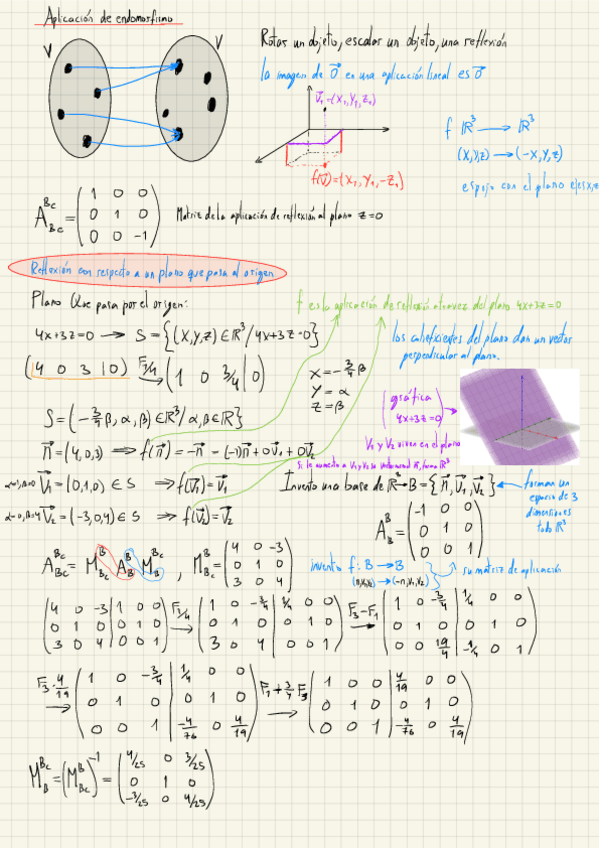 Aplicación de endomorfismo
V
V
Rotar un objeto, escalar un objeto, una reflexión
la imagen de 0⃗ en una aplicación lineal es 0⃗
v⃗₁=(x₁, y₁, z₁)
f(v⃗)=(x₁, y₁, -z₁)
f ℝ³ → ℝ³
(x,y,z) → (-x,y,z)
espejo con el plano ejes x,z
A_{Bc}^{Bc} = (1 0 0
0 1 0
0 0 -1) Matriz de la aplicación de reflexión al plano z=0
Reflexión con respecto a un plano que pasa al origen
Plano que pasa por el origen:
f es la aplicación de reflexión atravez del plano 4x+3z=0
4x+3z=0 → S={(x,y,z)∈ℝ³/4x+3z=0}
los coheficientes del plano dan un vector
perpendicular al plano.
(4 0 3 | 0) F₁/4 → (1 0 3/4 | 0)
x=-3/4 β
y=α
z=β
(gráfica
4x+3z=0)
S={(-3/4 β, α, β)∈ℝ³/ α,β∈ℝ}
v₁ y v₂ viven en el plano
n⃗=(4,0,3) ⇒ f(n⃗)=-n⃗ = (-1)n⃗+0v⃗₁+0v⃗₂
α=1, β=0 v⃗₁=(0,1,0)∈S ⇒ f(v⃗₁)=v⃗₁
Invento una base de ℝ³→B={n⃗,v⃗₁,v⃗₂}
forman un
espacio de 3
dimensiones
todo ℝ³
α=0, β=4 v⃗₂=(-3,0,4)∈S ⇒ f(v⃗₂)=v⃗₂
A_B^B = (-1 0 0
0 1 0
0 0 1)
A_{Bc}^{Bc} = M_{Bc}^B A_B^B M_B^{Bc} , M_{Bc}^B = (4 0 -3
0 1 0
3 0 4)
invento f: B → B
(n,v₁,v₂) → (-n,v₁,v₂)
su matriz de aplicación
(4 0 -3 | 1 0 0
0 1 0 | 0 1 0
3 0 4 | 0 0 1)
F₁/4 →
(1 0 -3/4 | 1/4 0 0
0 1 0 | 0 1 0
3 0 4 | 0 0 1)
F₃-F₁ →
(1 0 -3/4 | 1/4 0 0
0 1 0 | 0 1 0
0 0 19/4 | -1/4 0 1)
F₃·4/19 →
(1 0 -3/4 | 1/4 0 0
0 1 0 | 0 1 0
0 0 1 | -4/76 0 4/19)
F₁+3/4 F₃ →
(1 0 0 | 4/19 0 0
0 1 0 | 0 1 0
0 0 1 | -4/76 0 4/19)
M_B^{Bc} = (M_{Bc}^B)⁻¹ = (4/25 0 3/25
0 1 0
-3/25 0 4/25)